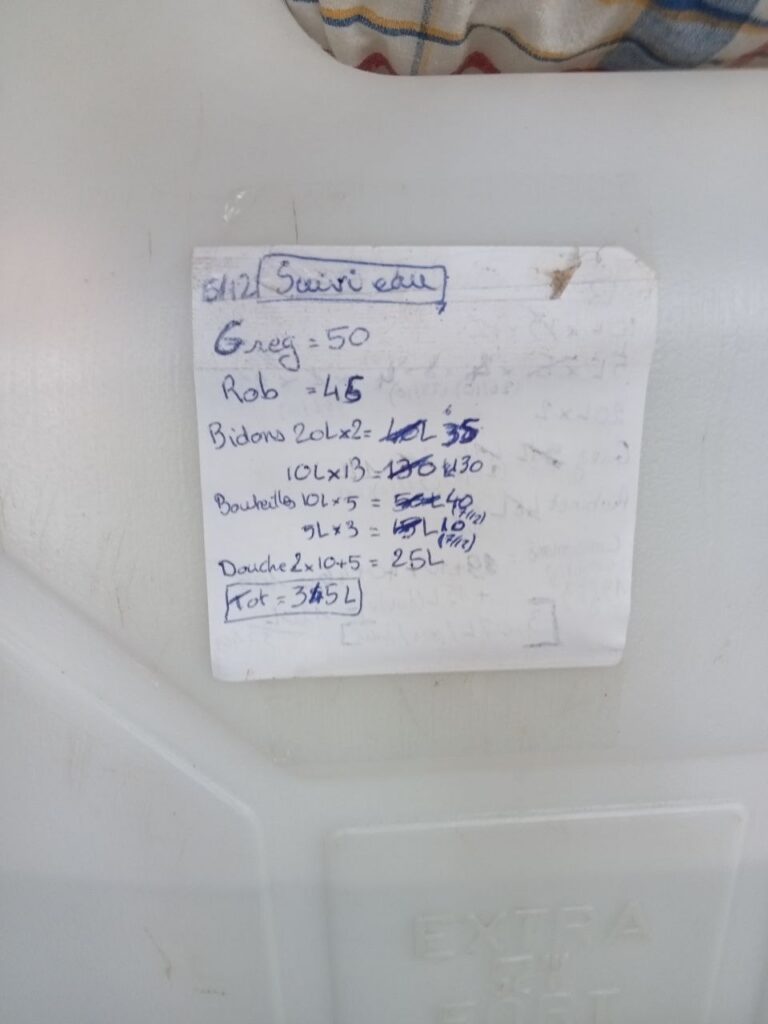 5/12 Suivi eau
Greg = 50
Rob = 45
Bidons 20L×2= 40L 35
10L×13 = 130 L130
Bouteilles 10L×5 = 50L 40
(7/12)
5L×3 = 15L 10
(7/12)
Douche 2×10+5 = 25L
Tot = 345L
EXTRA
FORT